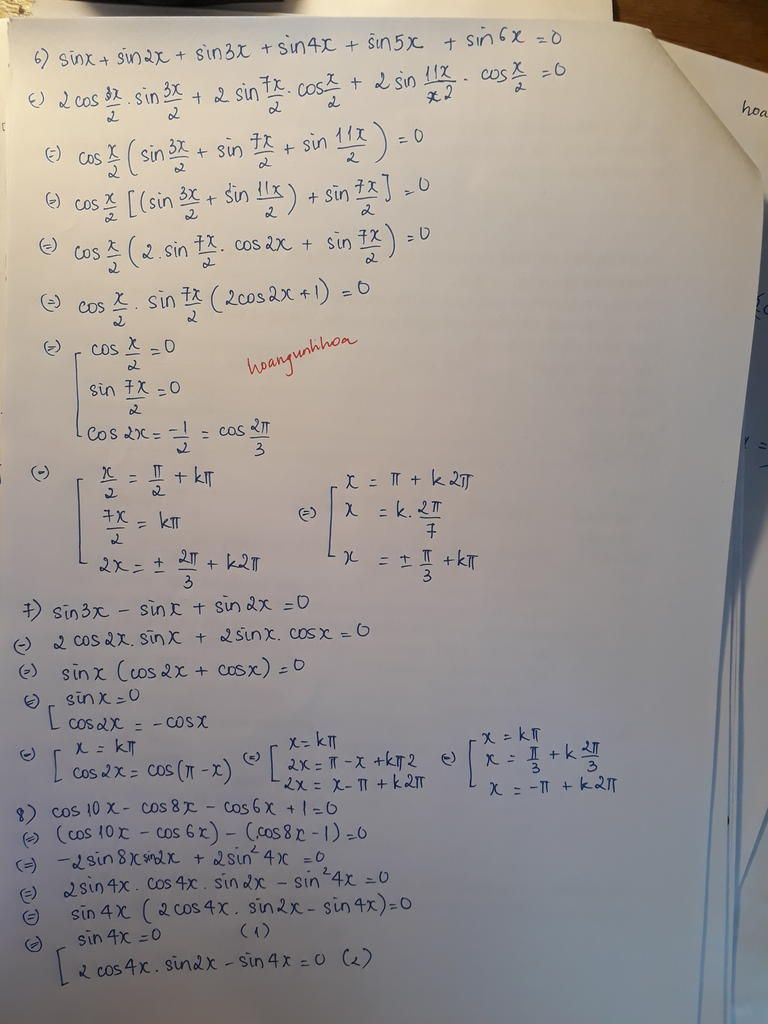 6) sinx + sin2x + sin3x + sin4x + sin5x + sin6x = 0
(=) 2cos x/2 . sin 3x/2 + 2 sin 7x/2 . cos x/2 + 2 sin 11x/2 . cos x/2 = 0
(=) cos x/2 (sin 3x/2 + sin 7x/2 + sin 11x/2) = 0
(=) cos x/2 [(sin 3x/2 + sin 11x/2) + sin 7x/2] = 0
(=) cos x/2 (2.sin 7x/2 . cos2x + sin 7x/2) = 0
(=) cos x/2 . sin 7x/2 (2cos2x+1) = 0
(=) [ cos x/2 = 0
sin 7x/2 = 0
cos2x = -1/2 = cos 2π/3
hoangunhhoa
(=) [ x/2 = π/2 + kπ (=) [ x = π + k2π
7x/2 = kπ x = k. 2π/7
2x = ± 2π/3 + k2π x = ± π/3 + kπ
7) sin3x - sinx + sin2x = 0
(=) 2cos2x.sinx + 2sinx.cosx = 0
(=) sinx (cos2x + cosx) = 0
(=) [ sinx = 0
cos2x = -cosx
(=) [ x = kπ (=) [ x = kπ (=) [ x = kπ
cos2x = cos(π-x) 2x = π-x+kπ2 x = π/3 + k 2π/3
2x = x-π+k2π x = -π + k2π
8) cos10x - cos8x - cos6x + 1 = 0
(=) (cos10x - cos6x) - (cos8x - 1) = 0
(=) -2sin8x sin2x + 2sin²4x = 0
(=) 2sin4x.cos4x.sin2x - sin²4x = 0
(=) sin4x (2cos4x.sin2x - sin4x) = 0
(=) [ sin4x = 0 (1)
2cos4x.sin2x - sin4x = 0 (2)
hoa